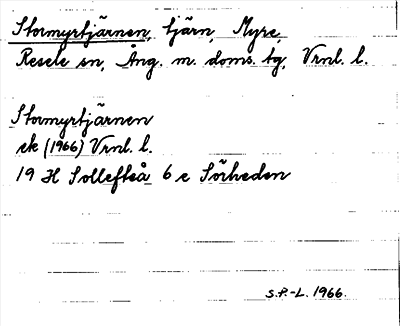 Stormyrtjärnen, tjärn, Myre,
Resele sn, Ång. m. doms. tg, Vrnl. l.
Stormyrtjärnen
ek (1966) Vrnl. l.
19 H Sollefteå 6 e Sörheden
S.P.-L. 1966.